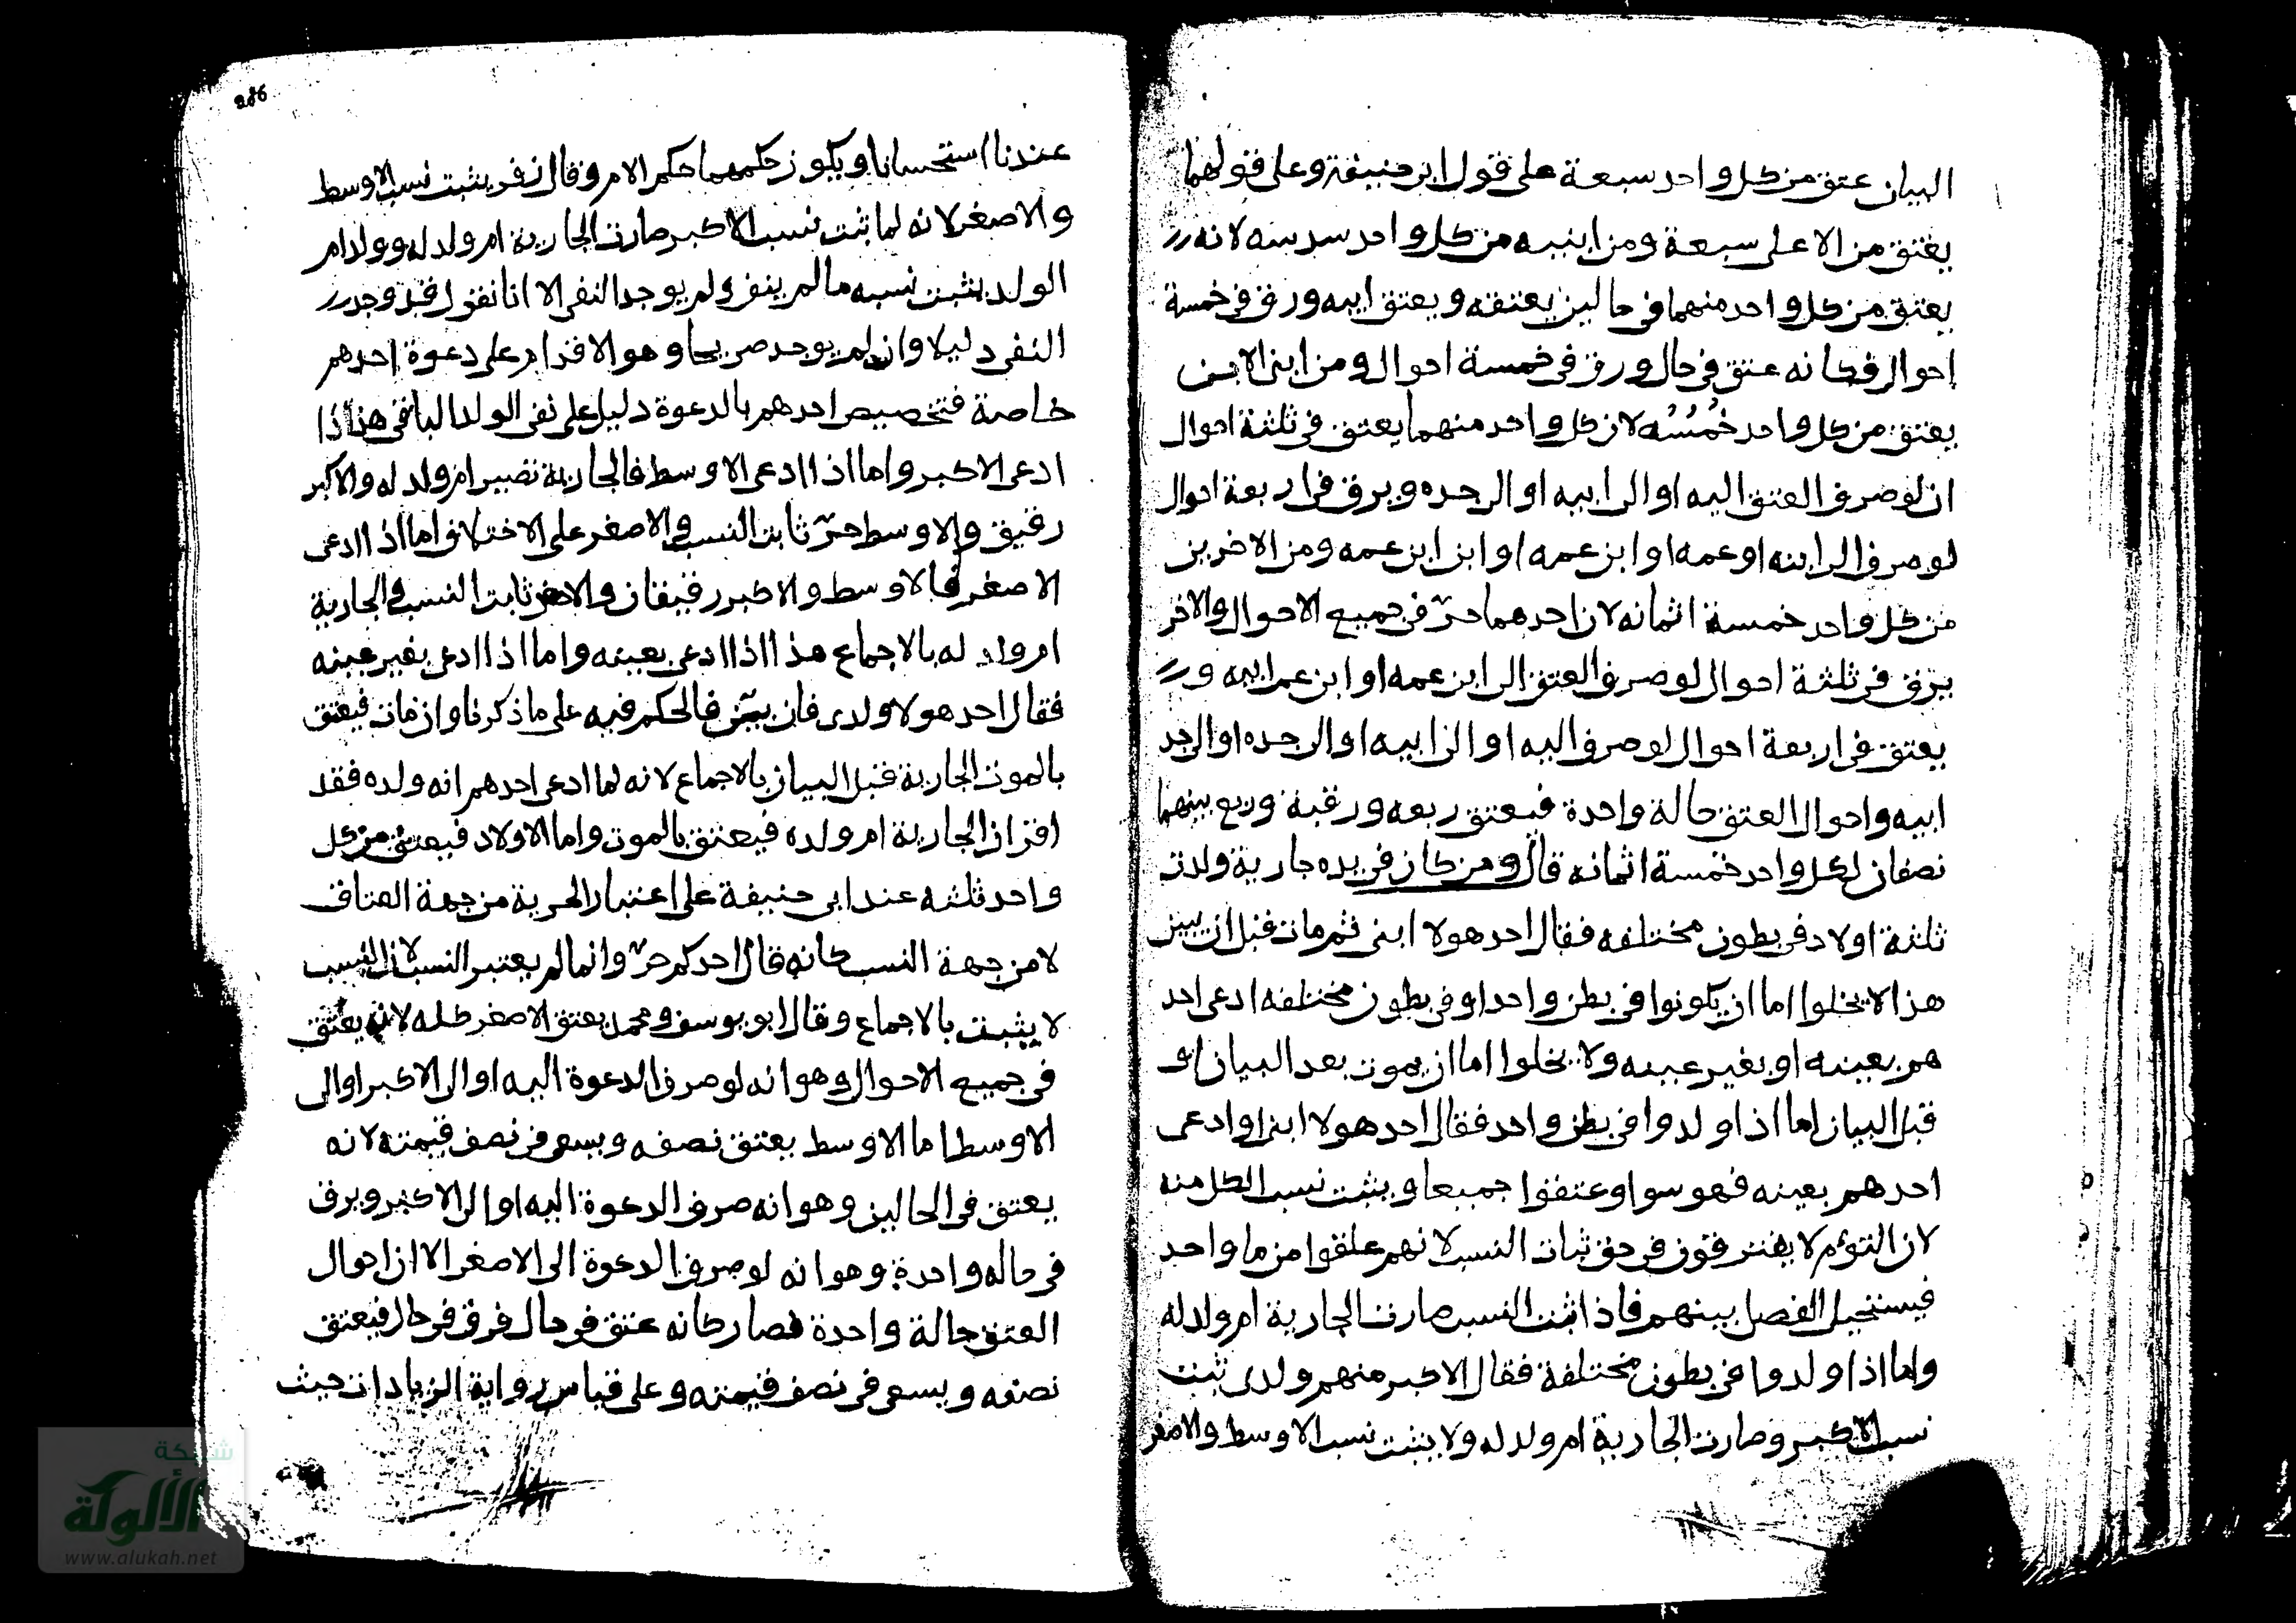 البيان عتق من كل واحد سبعة على قول ابى حنيفة وعلى قولهما
يعتق من الاعلى سبعة ومن ابنيه من كل واحد سدسه لانه
يعتق من كل واحد منهما فى حالين يعتقه ويعتق ابيه ورق فى خمسة
احوال فكانه عتق فى حال ورق فى خمسة احوال ومن ابنى الابن
يعتق من كل واحد خُمُسُه لان كل واحد منهما يعتق فى ثلثة احوال
ان لو صرف العتق اليه او الى ابيه او الى جده ويرق فى اربعة احوال
لو صرف الى ابنه او عمه او ابن عمه او ابن ابن عمه ومن الاخرين
من كل واحد خمسة اثمانه لان احدهما حرّ فى جميع الاحوال والاخر
يرق فى ثلثة احوال لو صرف العتق الى ابن عمه او ابن عم ابيه و
يعتق فى اربعة احوال لو صرف اليه او الى ابيه او الى جده او الى جد
ابيه واحوال العتق حالة واحدة فيعتق ربعه ورقبة وربع بينهما
نصفان لكل واحد خمسة اثمانه قال ومن كان فى يده جارية ولدت
ثلثة اولاد فى بطون مختلفه فقال احد هولا ابنى ثم مات قبل ان يبين
هذا لا يخلوا اما ان يكونوا فى بطن واحد او فى بطون مختلفه ادعى احد
هم بعينه او بغير عينه ولا يخلوا اما ان يموت بعد البيان او
قبل البيان اما اذا ولدوا فى بطن واحد فقال احد هولا ابنى او ادعى
احدهم بعينه فهو سوا وعتقوا جميعا ويثبت نسب الكل منه
لان التوءم لا يفترقون فى حق ثبات النسب لانهم علقوا من ما واحد
فيستحيل الفصل بينهم فاذا ثبت النسب صارت الجارية ام ولد له
واما اذا ولدوا فى بطون مختلفة فقال الاكبر منهم ولدى ثبت
نسب الاكبر وصارت الجارية ام ولد له ولا يثبت نسب الاوسط والاصغر
286
عندنا استحسانا ويكون حكمهما حكم الام وقال زفر يثبت نسب الاوسط
والاصغر لانه لما ثبت نسب الاكبر صارت الجارية ام ولد له وولد ام
الولد يثبت نسبه ما لم ينف ولم يوجد النفى الا انا نقول قد وجد
النفى دليلا وان لم يوجد صريحا وهو الاقدام على دعوة احدهم
خاصة فتخصيص احدهم بالدعوة دليل على نفى الولد الباقى هذا اذا
ادعى الاكبر واما اذا ادعى الاوسط فالجارية تصير ام ولد له والاكبر
رقيق والاوسط حرّ ثابت النسب والاصغر على الاختلاف اما اذا ادعى
الاصغر فالاوسط والاكبر رقيقان والاصغر ثابت النسب والجارية
ام ولد له بالاجماع هذا اذا ادعى بعينه واما اذا ادعى بغير عينه
فقال احد هولا ولدى فان بيّن فالحكم فيه على ما ذكرنا وان مات فيعتق
بالموت الجارية قبل البيان بالاجماع لانه لما ادعى احدهم انه ولده فقد
اقر ان الجارية ام ولده فيعتق بالموت واما الاولاد فيعتق من كل
واحد ثلثه عند ابى حنيفة على اعتبار الحرية من جهة العتاق
لا من جهة النسب كانه قال احدكم حرّ وانما لم يعتبر النسب لان النسب
لا يثبت بالاجماع وقال ابو يوسف ومحمد يعتق الاصغر كله لانه يعتق
فى جميع الاحوال وهو انه لو صرف الدعوة اليه او الى الاكبر او الى
الاوسط اما الاوسط يعتق نصفه ويسعى فى نصف قيمته لانه
يعتق فى الحالين وهو انه صرف الدعوة اليه او الى الاكبر ويرق
فى حاله واحدة وهو انه لو صرف الدعوة الى الاصغر الا ان احوال
العتق حالة واحدة فصار كانه عتق فى حال فرق فى حال فيعتق
نصفه ويسعى فى نصف قيمته وعلى قياس رواية الزيادات حيث
شبكة
الألوكة
www.alukah.net